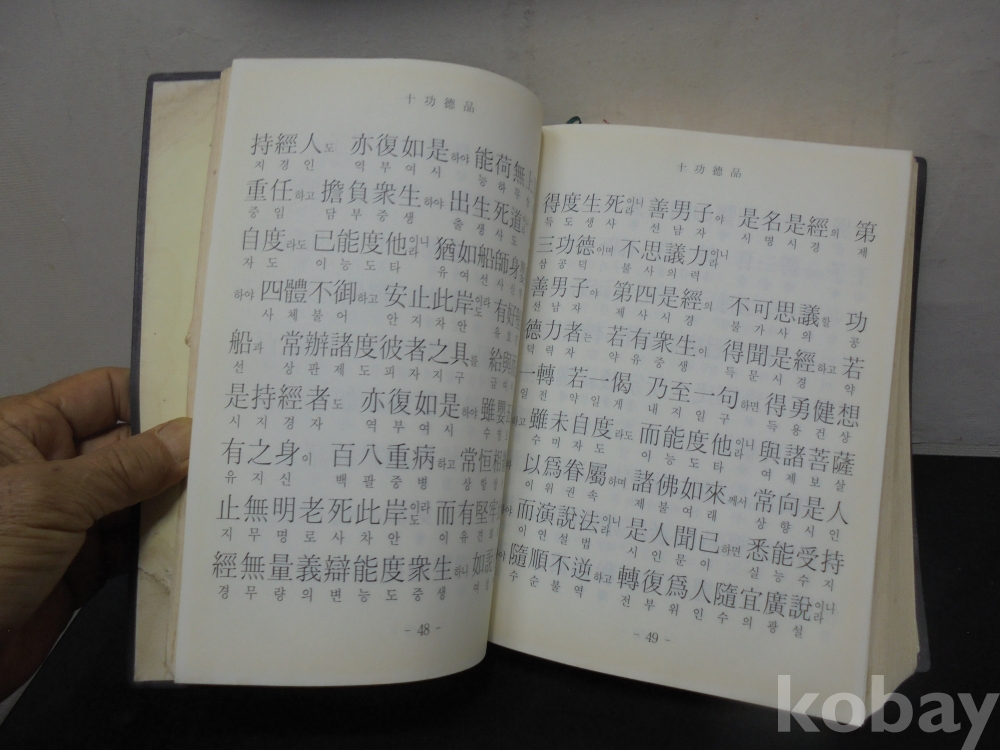 十功德品
持經人도 亦復如是하야 能荷無上
지경인 역부여시 능하무상
重任하고 擔負衆生하야 出生死道
중임 담부중생 출생사도
自度라도 已能度他이니 猶如船師身
자도 이능도타 유여선사신
하야 四體不御하고 安止此岸이라도 有好
사체불어 안지차안 유호
船과 常辦諸度彼者之具를 給與
선 상판제도피자지구 급여
是持經者도 亦復如是하야 雖嬰五
시지경자 역부여시 수영오
有之身이 百八重病하고 常恒相
유지신 백팔중병 상항상
止無明老死此岸이라도 而有堅牢
지무명로사차안 이유견뢰
經無量義辯能度衆生하니 如說
경무량의변능도중생 여설
- 48 -
十功德品
得度生死이니라 善男子야 是名是經의 第
득도생사 선남자 시명시경 제
三功德이며 不思議力이니라
삼공덕 불사의력
善男子야 第四是經의 不可思議할 功
선남자 제사시경 불가사의 공
德力者는 若有衆生이 得聞是經하고 若
덕력자 약유중생 득문시경 약
一轉 若一偈 乃至一句하면 得勇健想
일전 약일게 내지일구 득용건상
하고 雖未自度라도 而能度他이니 與諸菩薩
수미자도 이능도타 여제보살
以爲眷屬하며 諸佛如來께서 常向是人
이위권속 제불여래 상향시인
하야 而演說法이니라 是人聞已하면 悉能受持
이연설법 시인문이 실능수지
하야 隨順不逆하고 轉復爲人隨宜廣說이니라
수순불역 전부위인수의광설
- 49 -
kobay